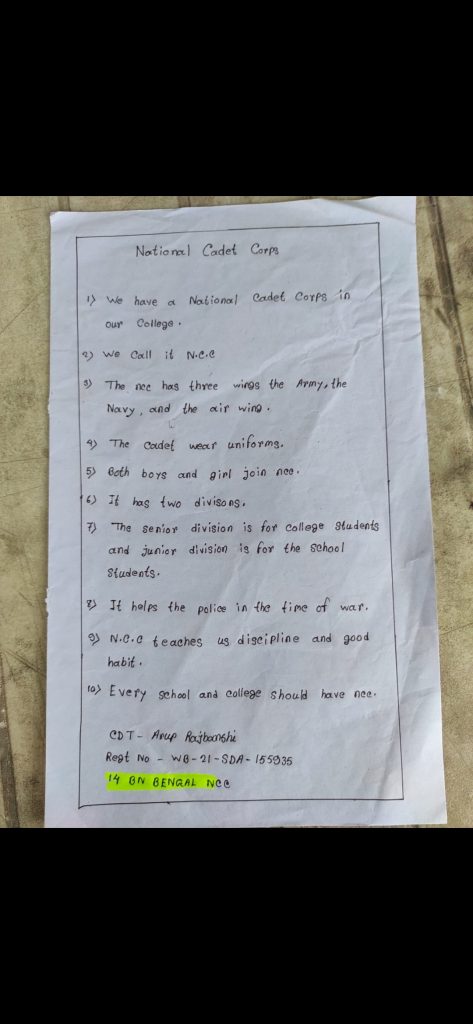 National Cadet Corps
1) We have a National Cadet Corps in
our College.
2) We Call it N.C.C
3) The ncc has three wings the Army, the
Navy, and the air wing.
4) The Cadet wear uniforms.
5) Both boys and girl join ncc.
6) It has two divisons.
7) The senior division is for college students
and junior division is for the school
students.
8) It helps the police in the time of war.
9) N.C.C teaches us discipline and good
habit.
10) Every school and college should have ncc.
CDT - Anup Rajbanshi
Regt No - WB-21-SDA-155935
14 BN BENGAL NCC